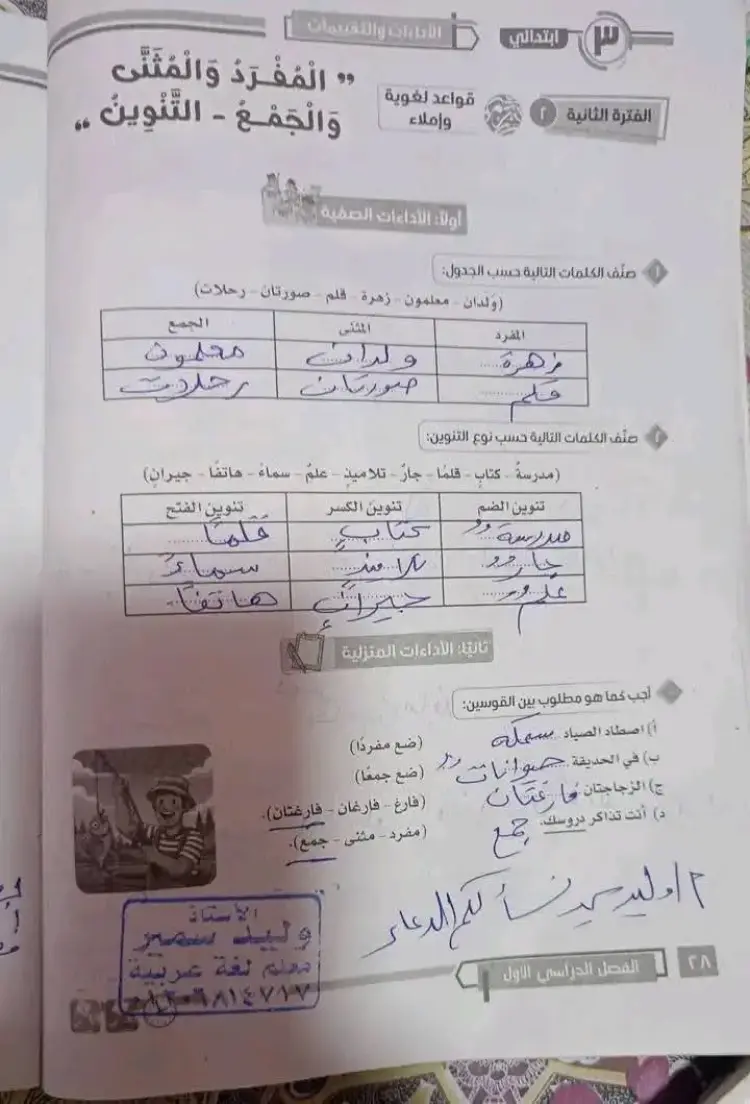 الأداءات والتقييمات
٣ ابتدائي
الفترة الثانية ٢
قواعد لغوية وإملاء
" الْمُفْرَدُ وَالْمُثَنَّى
وَالْجَمْعُ - التَّنْوِينُ "
أولًا: الأداءات الصفية
١ صنّف الكلمات التالية حسب الجدول:
(وَلدان - معلمون - زهرة - قلم - صورتان - رحلات)
المفرد المثنى الجمع
زهرة ولدان معلمون
قلم صورتان رحلات
٢ صنّف الكلمات التالية حسب نوع التنوين:
(مدرسةٌ - كتابٍ - قلمًا - جارٌ - تلاميذٍ - علمٌ - سماءً - هاتفًا - جيرانٍ)
تنوين الضم تنوين الكسر تنوين الفتح
مدرسةٌ كتابٍ قلمًا
جارٌ تلاميذٍ سماءً
علمٌ جيرانٍ هاتفًا
ثانيًا: الأداءات المنزلية
أجب كما هو مطلوب بين القوسين:
أ) اصطاد الصياد سمكه (ضع مفردًا)
ب) في الحديقة حيوانات (ضع جمعًا)
ج) الزجاجتان فارغتان (فارغ - فارغان - فارغتان).
د) أنت تذاكر دروسك. جمع (مفرد - مثنى - جمع).
م/ وليد سمير نسألكم الدعاء
الأستاذ
وليد سمير
معلم لغة عربية
الفصل الدراسي الأول
٢٨